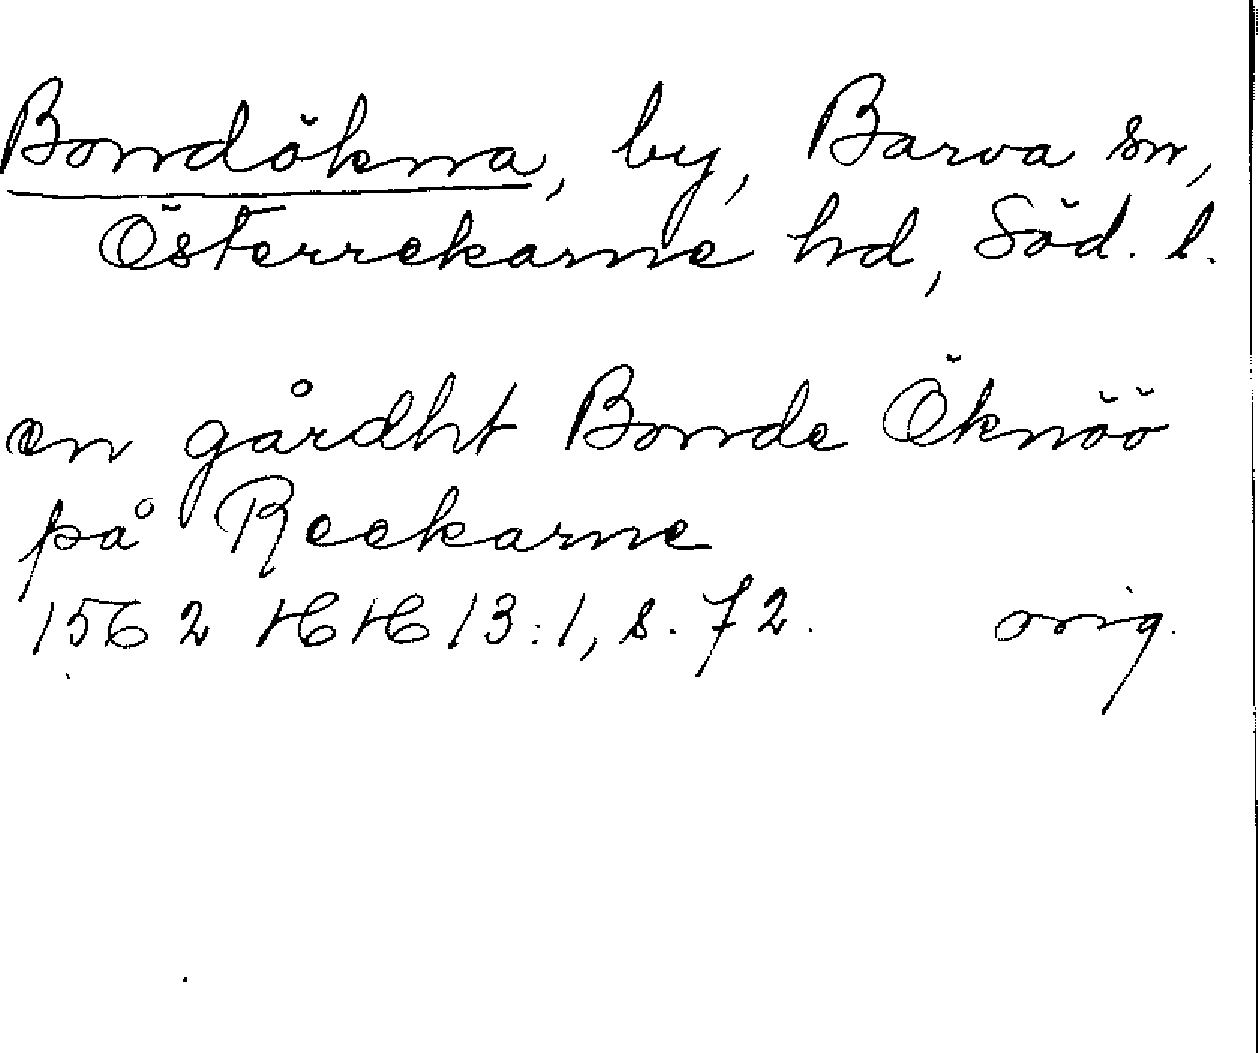 Bondökna, by, Barva sn,
Österrekarne hd, Söd. l.
en gårdht Bonde Öknöö
på Reekarne
1562 HH 13:1, s. 72. orig.